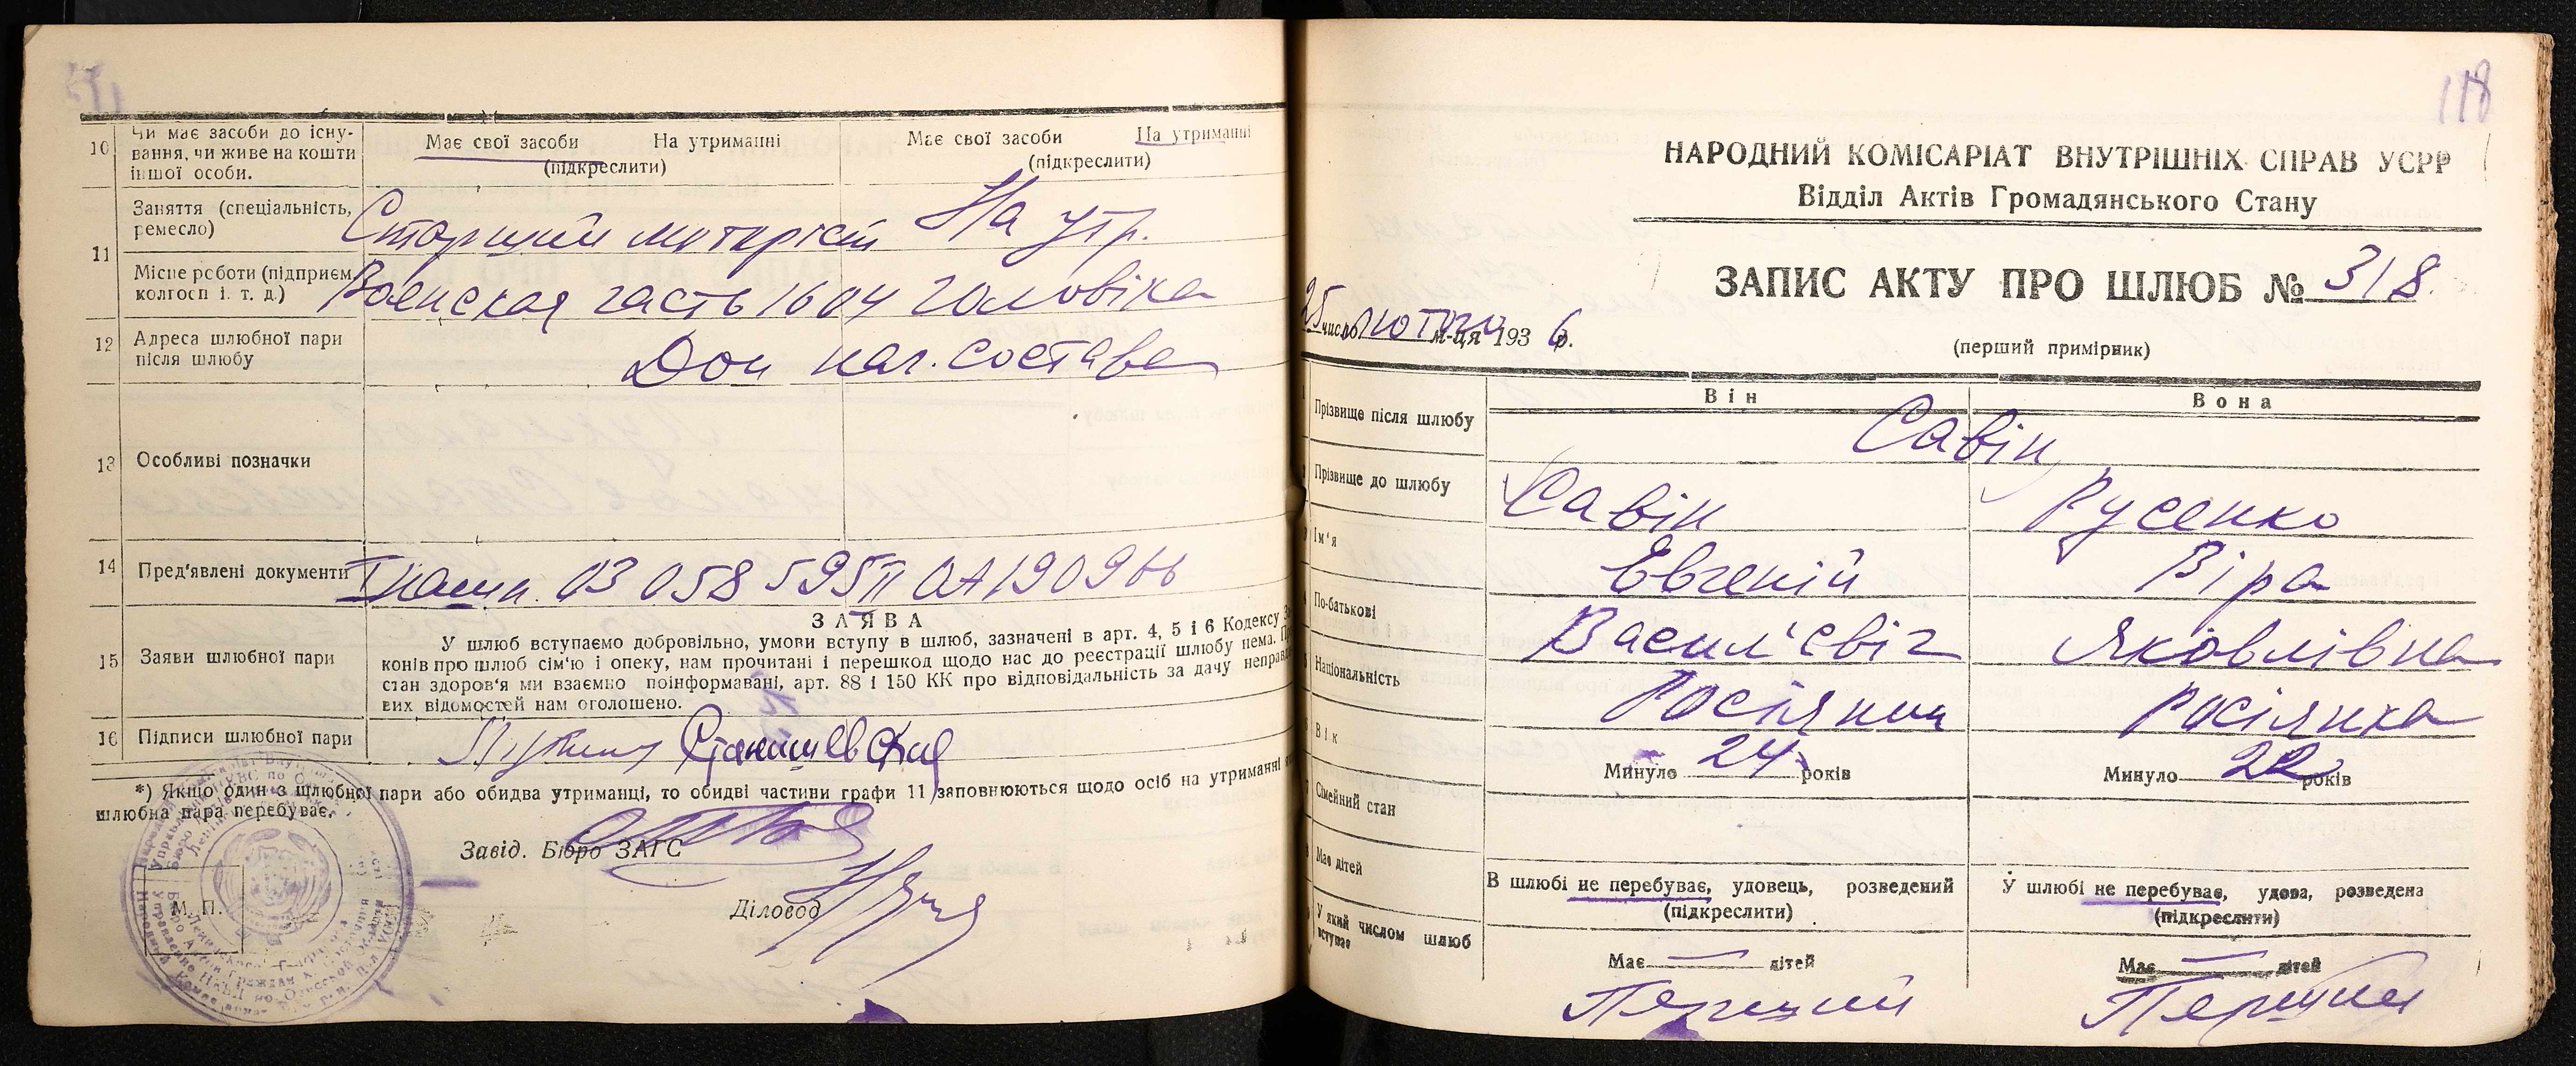 10 Чи має засоби до існу-
вання, чи живе на кошти
іншої особи.
Має свої засоби На утриманні
(підкреслити)
Має свої засоби На утриманні
(підкреслити)
11 Заняття (спеціальність,
ремесло)
Старший моторіст На утр.
Місце роботи (підприєм.
колгосп і. т. д.)
Военская часть 1604 чоловіка
12 Адреса шлюбної пари
після шлюбу
Дом нач. состава
13 Особливі позначки
14 Пред'явлені документи
03 058 595 ОА 190966
15 Заяви шлюбної пари
ЗАЯВА
У шлюб вступаємо добровільно, умови вступу в шлюб, зазначені в арт. 4, 5 і 6 Кодексу За-
конів про шлюб сім'ю і опеку, нам прочитані і перешкод щодо нас до реєстрації шлюбу нема. Про
стан здоров'я ми взаємно поінформавані, арт. 88 і 150 КК про відповідальність за дачу неправди-
вих відомостей нам оголошено.
16 Підписи шлюбної пари
Станишевская
*) Якщо один з шлюбної пари або обидва утриманці, то обидві частини графи 11 заповнюються щодо осіб на утриманні
шлюбна пара перебуває.
Завід. Бюро ЗАГС
М. П.
Діловод
118
НАРОДНИЙ КОМІСАРІАТ ВНУТРІШНІХ СПРАВ УСРР
Відділ Актів Громадянського Стану
ЗАПИС АКТУ ПРО ШЛЮБ № 318.
25 число лютого м-ця 1936 р.
(перший примірник)
Він Вона
Прізвище після шлюбу
Савін
Прізвище до шлюбу
Савін Русенко
Ім'я
Евгеній Віра
По-батькові
Васил'євіч Яковлівна
Національність
Росіянин Росіянка
Вік
Минуло 24 років Минуло 22 років
Сімейний стан
Має дітей
В шлюбі не перебуває, удовець, розведений
(підкреслити)
У шлюбі не перебуває, удова, розведена
(підкреслити)
У який числом шлюб
вступає
Має — дітей Має — дітей
Перший Перший